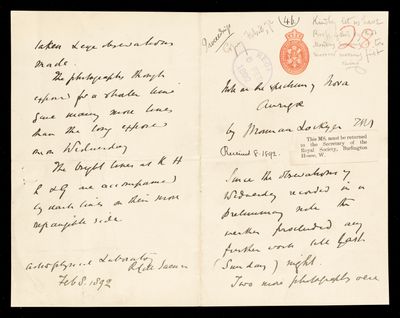 Proceedings
(46)
28
Note on the spectrum of Nova
Aurigæ
by J Norman Lockyer FRS
Received 8.1892.
This MS. must be returned
to the Secretary of the
Royal Society, Burlington
House, W.
Since the observations of
Wednesday recorded in a
preliminary note the
weather precluded any
further work till last
(Sunday) night.
Two more photographs were
taken & eye observations
made.
The photographs though
exposed for a shorter time
give many more lines
than the long exposed
one on Wednesday
The bright lines at K H
h & G are accompanied
by dark lines on their more
refrangible side
Astrophysical Laboratory
R. Coll. Science
Feb 8. 1892